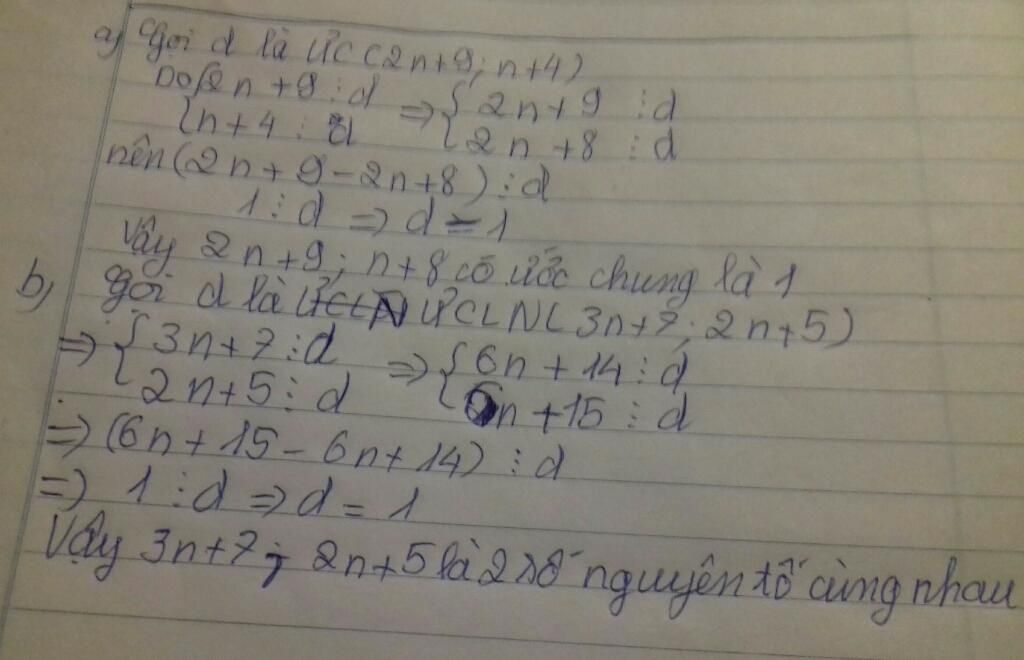 a) Gọi d là ƯC (2n+9; n+4)
Do { 2n+9 ⋮ d ⇒ { 2n+9 ⋮ d
{ n+4 ⋮ d { 2n+8 ⋮ d
nên (2n+9-2n+8) ⋮ d
1 ⋮ d ⇒ d = 1
Vậy 2n+9; n+8 có ước chung là 1
b) Gọi d là ƯCLN ( 3n+7; 2n+5)
⇒ { 3n+7 ⋮ d ⇒ { 6n+14 ⋮ d
{ 2n+5 ⋮ d { 6n+15 ⋮ d
⇒ (6n+15-6n+14) ⋮ d
⇒ 1 ⋮ d ⇒ d = 1
Vậy 3n+7; 2n+5 là 2 số nguyên tố cùng nhau